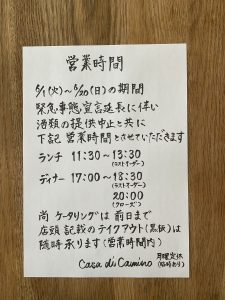 営業時間
6/1(火)〜6/20(日)の期間
緊急事態宣言延長に伴い
酒類の提供中止と共に
下記営業時間とさせていただきます
ランチ 11:30〜13:30
(ラストオーダー)
ディナー 17:00〜18:30
(ラストオーダー)
20:00
(クローズ)
尚 ケータリングは前日まで
店頭記載のテイクアウト(黒板)は
随時承ります(営業時間内)
Casa di Camino
月曜定休
(臨時あり)